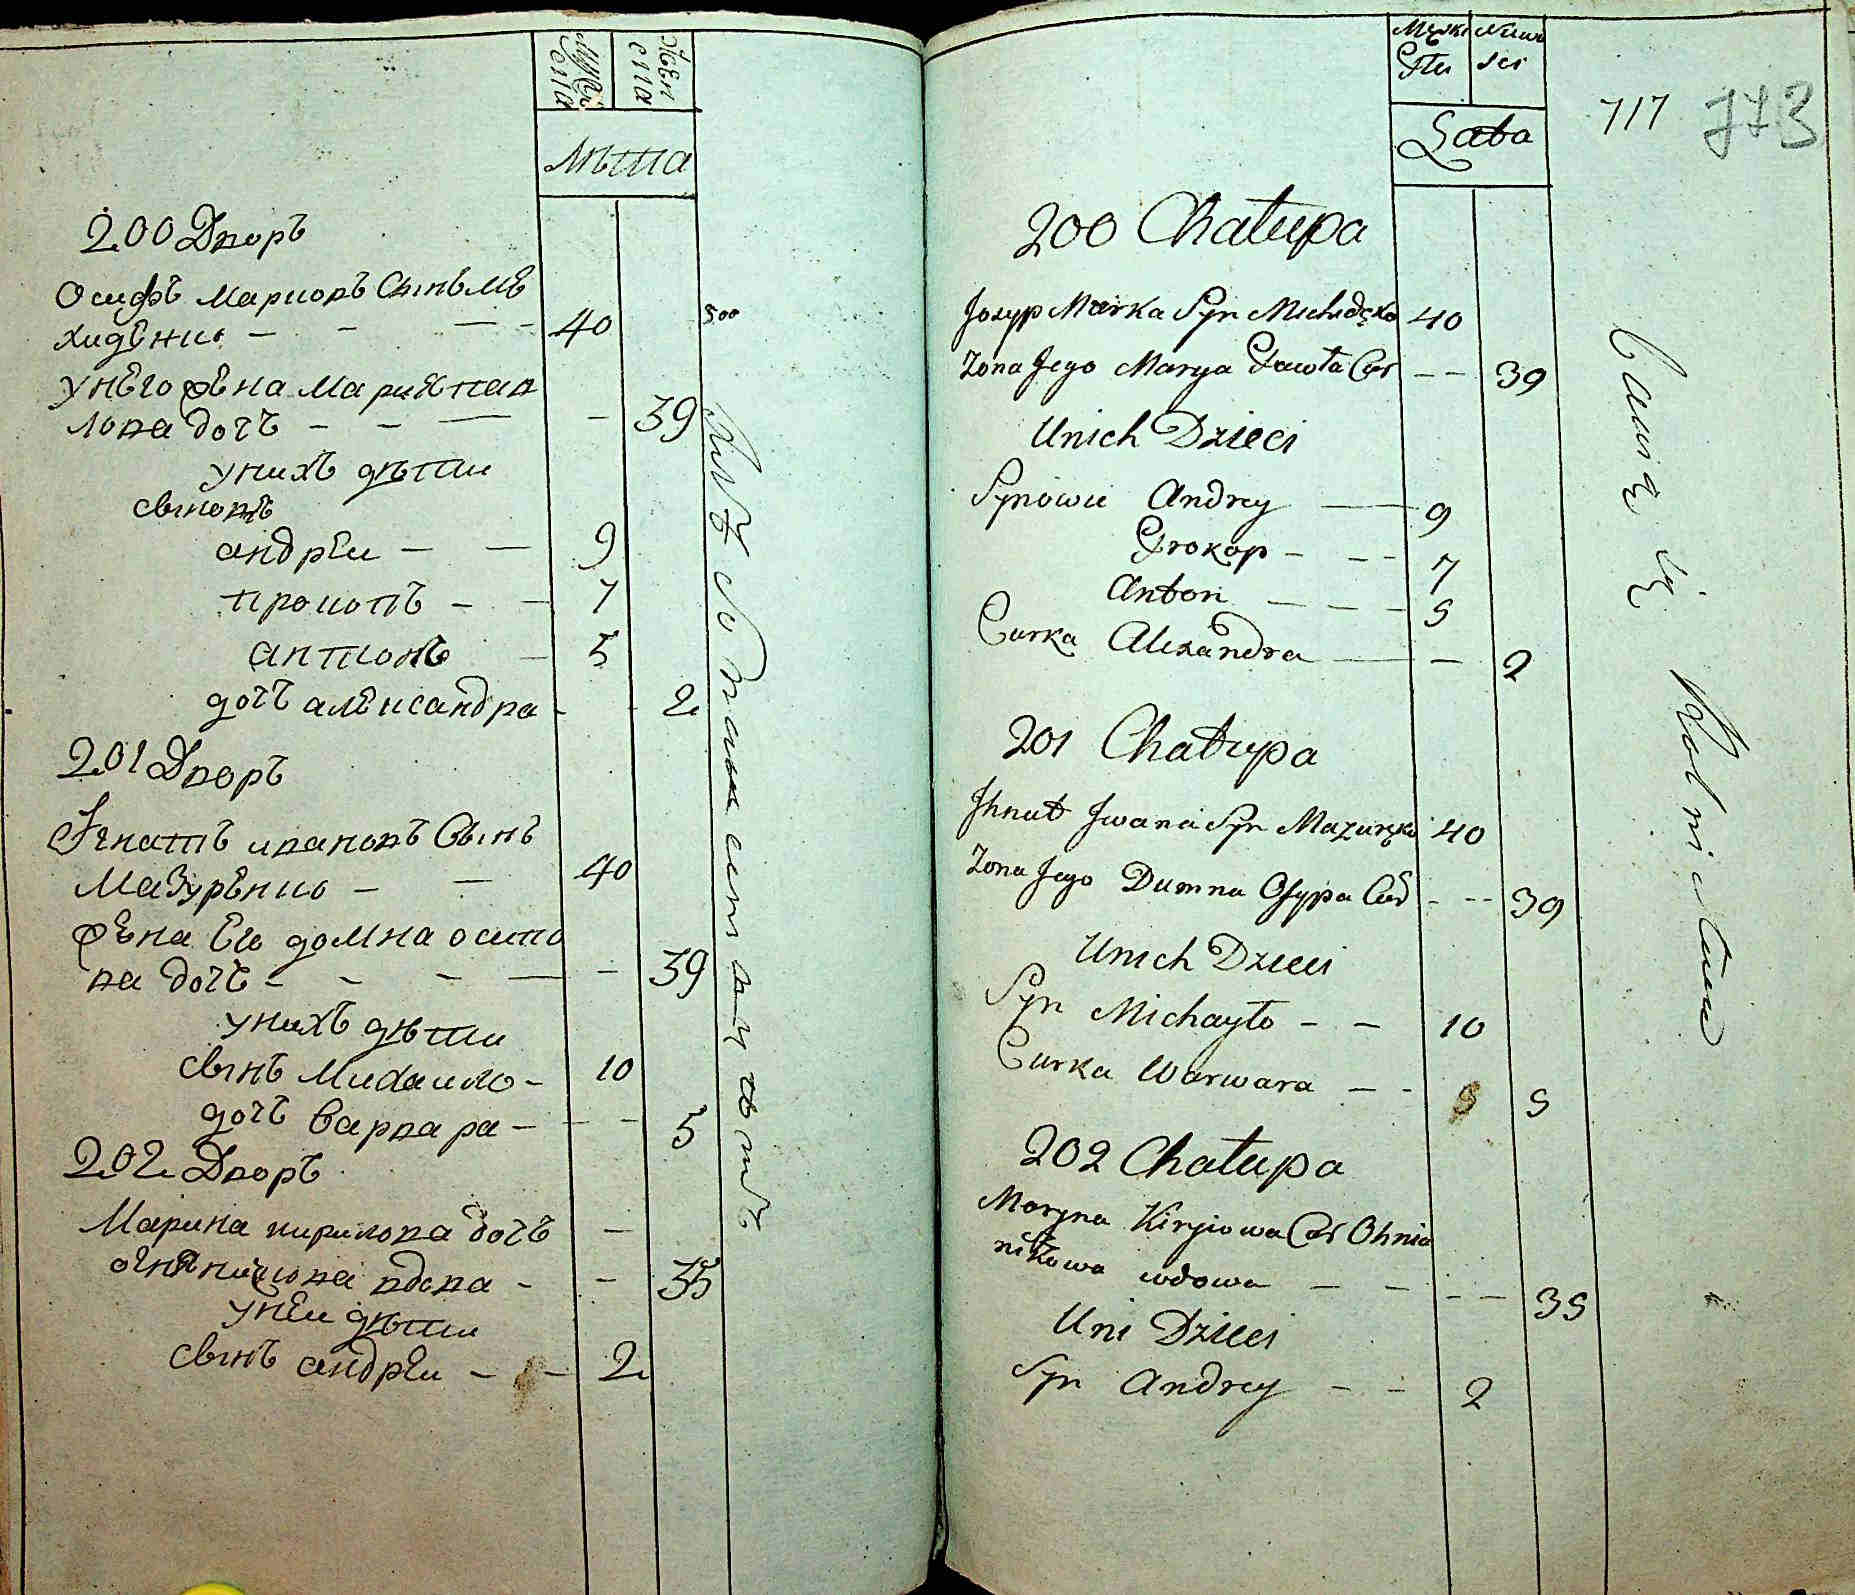 Мужс
ска
Женс
ска
лѣта
200 Дворъ
Осифъ Марковъ Сынъ Ме
хиденко - - - - 40
унего жена Мария пав
лова дочъ - - - - 39
унихъ дѣти
сыновѣ
андреи - - 9
прокопъ - - 7
антонъ - 5
дочъ александра - - 2
201 Дворъ
Игнатъ ивановъ Сынъ
Мазуренко - - 40
жена Его домна осипо
ва дочъ - - - - - 39
унихъ дѣти
сынъ Михаило - 10
дочъ Варвара - - - 5
202 Дворъ
Марина кирилова дочъ -
огнѣникова вдова - - 35
унеи дѣти
сынъ андреи - - 2
500
717 773
Męzki
Płci
Lata
200 Chałupa
Josyp Marka Syn Michidęko 40
Zona Jego Marya Pawła Cor - - 39
Unich Dzieci
Synowie Andrey - 9
Prokop - - - 7
Anton - - - - 5
Curka Alexandra - - 2
201 Chałupa
Jhnat Jwana Syn Mazuręko 40
Zona Jego Dumna Osypa Cor - - - 39
Unich Dzieci
Syn Michayło - - 10
Curka Warwara - - 5
202 Chałupa
Maryna Kiryłowa Cor Ohnia
nikowa wdowa - - - - 35
Uni Dzieci
Syn Andrey - - 2